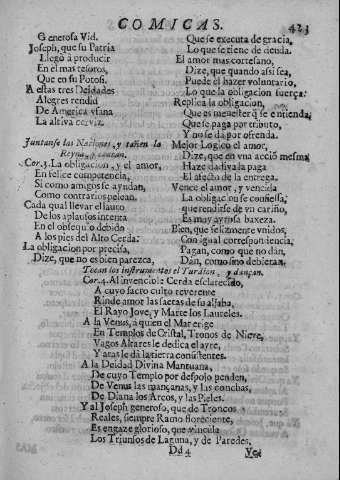 COMICAS. 423
Generosa Vid.
Joseph, que su Patria
Llegò à producir
En el mas tesoros,
Que en su Potosi.
A estas tres Deidades
Alegres rendid
De America vfana
La altiva cerviz.
Juntanse las Naciones, y tañen la
Reyna, y cantan.
Cor. 3. La obligacion, y el amor,
En felice competencia,
Si como amigos se ayudan,
Como contrarios pelean.
Cada qual llevar el lauto
De los aplausos intenta
En el obsequio debido
A los pies del Alto Cerda.
La obligacion por precisa,
Dize, que no es bien parezca,
Que se executa de gracia,
Lo que se tiene de deuda.
El amor mas cortesano,
Dize, que quando assi sea,
Puede el hazer voluntario,
Lo que la obligacion fuerça.
Replica la obligacion,
Que es menester q̃ se entienda,
Que se paga por tributo,
Y no se da por ofrenda.
Mejor Logico el amor,
Dize, que en vna acciõ mesma
Haze dadiva la paga
El afecto de la entrega.
Vence el amor, y vencida
La obligacion se confiessa,
que rendirse de vn cariño,
Es muy ayrosa baxeza.
Bien, que felizmente vnidos,
Con igual correspondencia,
Pagan, como que no dàn,
Dàn, como sino debieran.
Tocan los instrumentos el Turdion, y dançan.
Cor. 4. Al invencible Cerda esclarecido,
A cuyo sacro culto reverente
Rinde amor las saetas de su aljaba,
El Rayo Jove, y Marte los Laureles.
A la Venus, à quien el Mar erige
En Templos de Cristal, Tronos de Nieve,
Vagos Altares le dedica el ayre,
Y aras le dà la tierra consistentes.
A la Deidad Divina Mantuana,
De cuyo Templo por despojo penden,
De Venus las mançanas, y las conchas,
De Diana los Arcos, y las Pieles.
Y al Joseph generoso, que de Troncos
Reales, siempre Ramo floreciente,
Es engaze glorioso, que vincula
Los Triunfos de Laguna, y de Paredes.
Dd 4